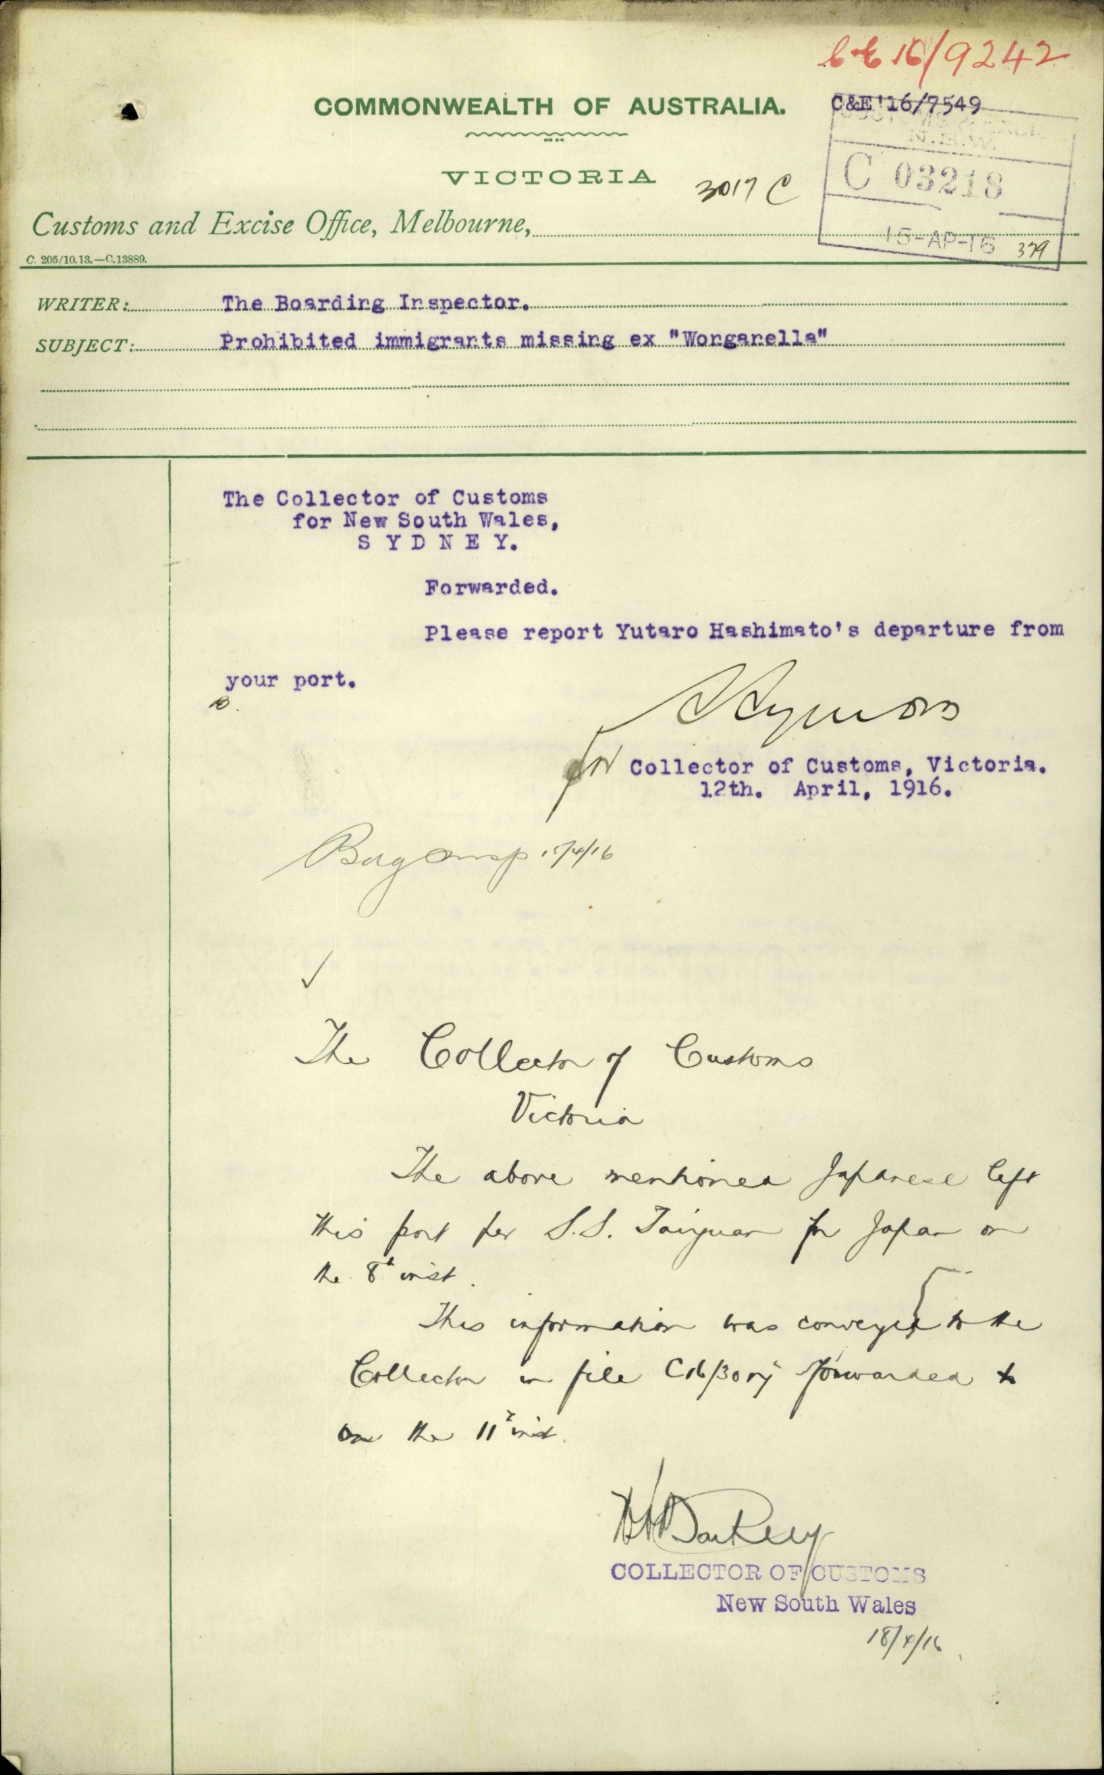 C&E 16/9242
COMMONWEALTH OF AUSTRALIA.
C&E'16/7549
N.S.W.
VICTORIA
3017 C
C 03218
Customs and Excise Office, Melbourne,
15-AP-16 379
C. 205/10.13.—C.13889.
WRITER: The Boarding Inspector.
SUBJECT: Prohibited immigrants missing ex "Wonganella"
The Collector of Customs
for New South Wales,
SYDNEY.
Forwarded.
Please report Yutaro Hashimato's departure from
your port.
for Collector of Customs, Victoria.
12th. April, 1916.
/4/16
The Collector of Customs
Victoria
The above mentioned Japanese left
this port per S.S. Taiyuan for Japan on
the 8th inst.
This information was conveyed to the
Collector in file forwarded to
on the 11th inst.
COLLECTOR OF CUSTOMS
New South Wales
18/4/16